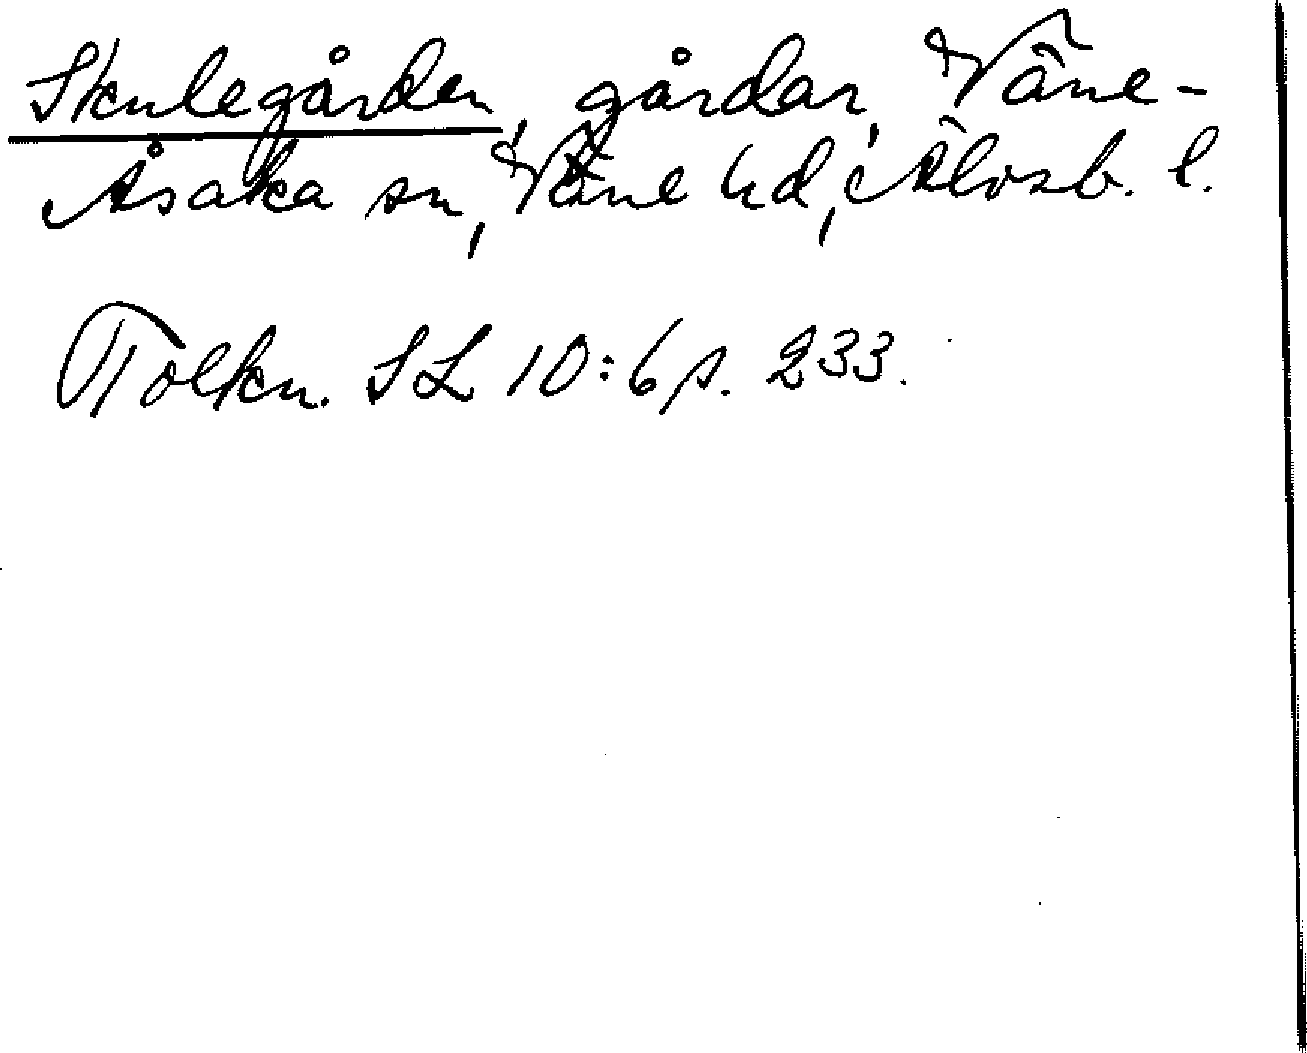 Skulegården, gårdar, Väne-
Åsaka sn, Väne hd, Älvsb. l.
Tolkn. SL 10:6 s. 233.